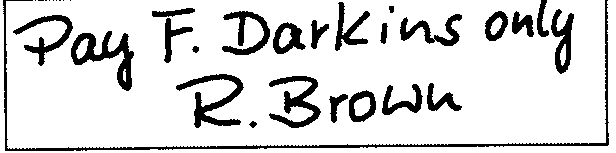 Pay F. Darkins only
R. Brown